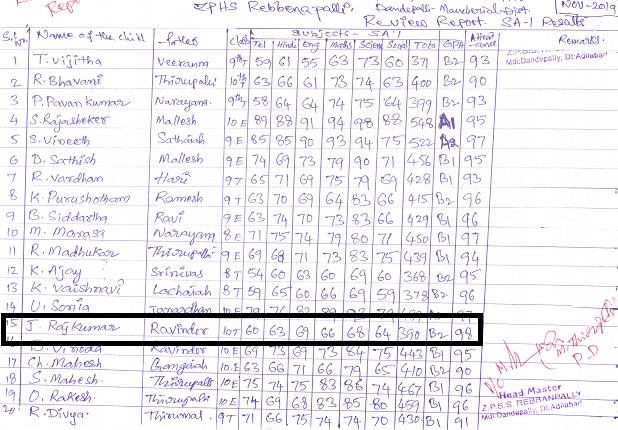 ZPHS Rebbenapally, Dandepally - Mancherial - Dist. NOV-2019
Review Report. SA-1 Results
Subjects - SA-1
S.l No. Name of the child Father Class Tel Hindi Eng maths Scien Social Total GIPA Attendance Remarks.
1 T. vijitha Veeranna 9th T 59 61 55 63 73 60 371 B2 93
Z.P.S.S. REBBANPALLY
Mdl:Dandepally, Dt:Adilabad
2 R. Bhavani Thirupathi 10th T 63 66 61 73 74 63 400 B2 90
3 P. Pavan kumar Narayana. 9th T 58 64 64 74 75 64 399 B2 93
4 S. Rajasheker Mallesh 10 E 89 88 91 94 98 88 548 A1 95
5 S. Vineeth Sathaiah 9 E 85 85 90 93 94 75 522 A2 97
6 D. Sathish Mallesh 9 E 74 69 73 79 90 71 456 B1 95
7 R. Vardhan Hari 9 T 65 71 69 75 79 69 428 B1 93
8 K. Purushotham Ramesh 9 T 63 70 69 64 83 66 415 B2 96
9 B. Siddartha Ravi 9 E 63 74 70 73 83 66 429 B1 96
10 M. Manasa Narayana 8 E 71 75 74 79 80 71 450 B1 97
11 R. Madhukar Thirupathi 9 E 69 68 71 73 83 75 439 B1 94
12 K. Ajay Srinivas 8 T 54 60 63 60 69 60 368 B2 95
13 K. Vaishnavi Lachaiah 8 T 59 65 60 66 69 59 378 B2 96
14 U. Sonia Janardhan
15 J. Raj kumar Ravinder 10 T 60 63 69 66 68 64 390 B2 98
Vinoda Ravinder 10 E 73 69 73 84 75 443 B1 95
17 Ch. Mahesh Gangaiah 10 E 63 66 71 66 79 65 410 B2 90
18 S. Mahesh. Thirupathi 10 E 75 74 75 83 86 74 467 B1 96
19 O. Rakesh. Thirupathi 10 E 74 69 68 83 85 80 459 B1 96
20 R. Divya. Thirumal 9 T 71 66 75 74 74 70 430 B1 91
P.D
Head Master
Z.P.S.S. REBBANPALLY
Mdl:Dandepally, Dt:Adilabad